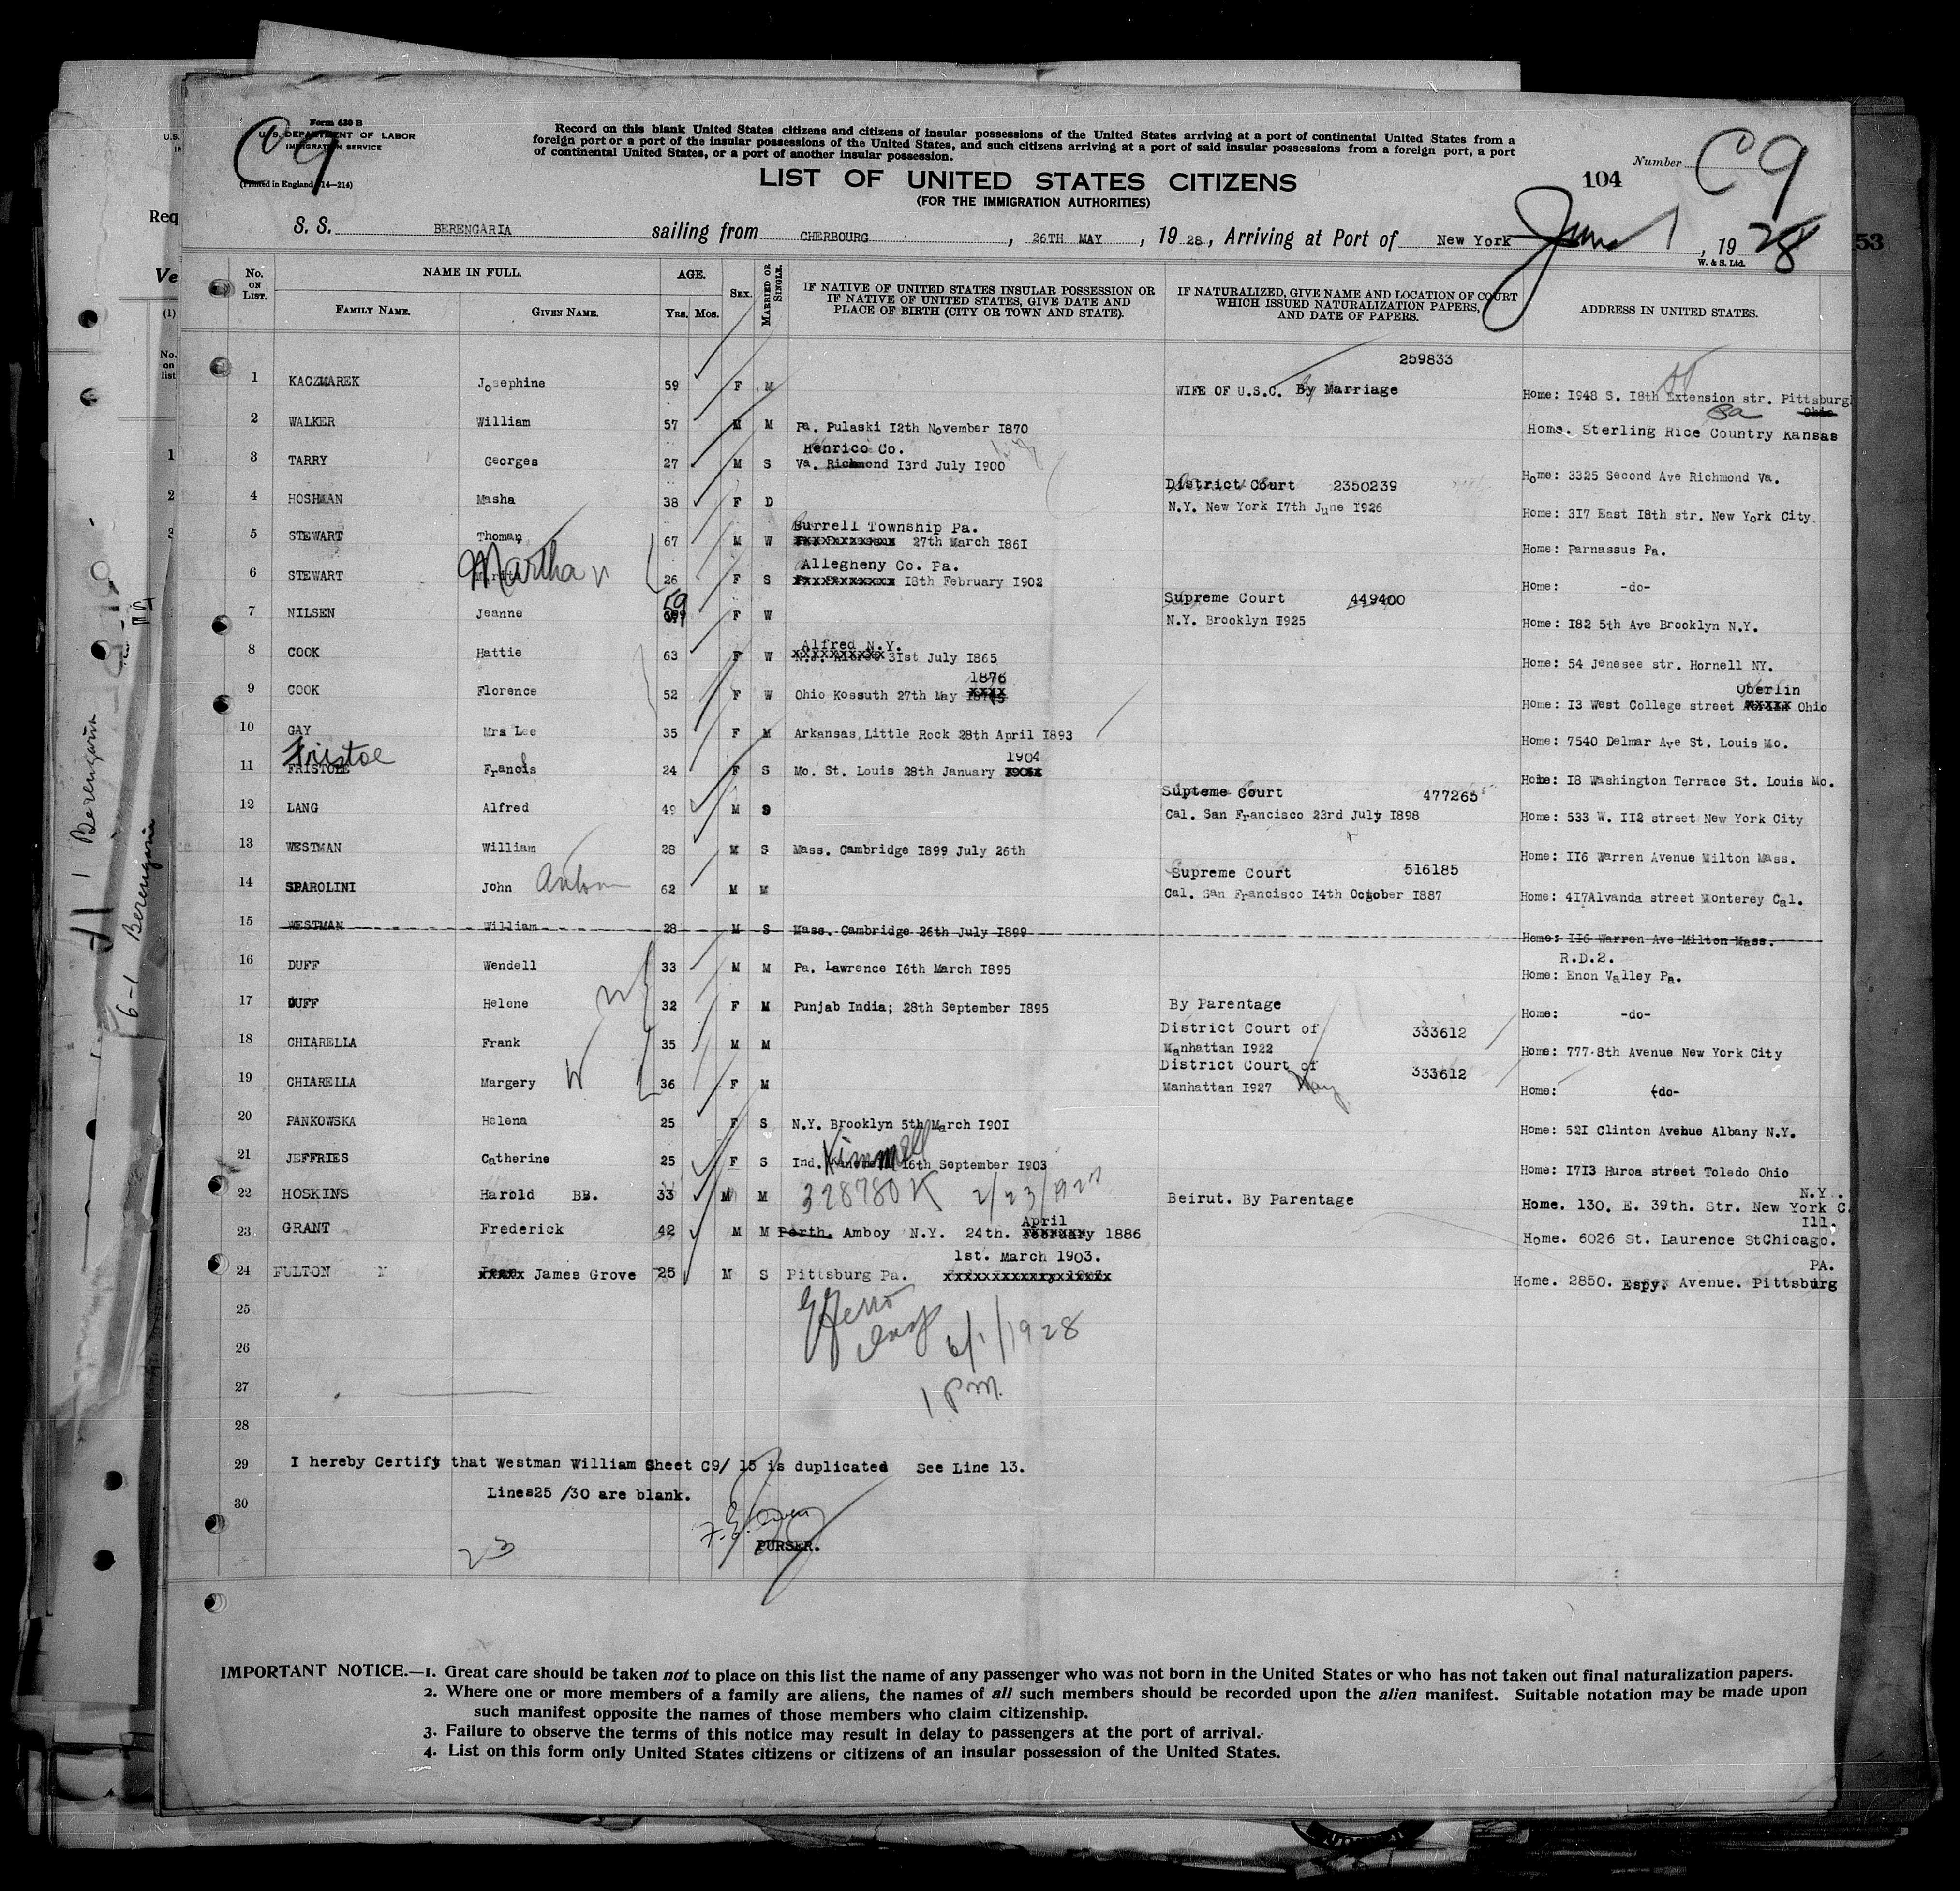 Form 630 B
U.S. DEPARTMENT OF LABOR
IMMIGRATION SERVICE
(Printed in England 14—214)
C9
Record on this blank United States citizens and citizens of insular possessions of the United States arriving at a port of continental United States from a
foreign port or a port of the insular possessions of the United States, and such citizens arriving at a port of said insular possessions from a foreign port, a port
of continental United States, or a port of another insular possession.
LIST OF UNITED STATES CITIZENS
(FOR THE IMMIGRATION AUTHORITIES)
Number C9
104
S. S. BERENGARIA sailing from CHERBOURG, 26TH MAY, 19 28, Arriving at Port of New York June 1, 19 28
W. & S. Ltd.
53
No. ON LIST. NAME IN FULL. FAMILY NAME. GIVEN NAME. AGE. Yrs. Mos. SEX. MARRIED OR SINGLE. IF NATIVE OF UNITED STATES INSULAR POSSESSION OR IF NATIVE OF UNITED STATES, GIVE DATE AND PLACE OF BIRTH (CITY OR TOWN AND STATE). IF NATURALIZED, GIVE NAME AND LOCATION OF COURT WHICH ISSUED NATURALIZATION PAPERS, AND DATE OF PAPERS. ADDRESS IN UNITED STATES.
259833
1 KACZMAREK Josephine 59 F M WIFE OF U.S.C. By Marriage Home: I948 S. I8th Extension str. Pittsburg
Pa Ohio
2 WALKER William 57 M M Pa. Pulaski I2th November I870 Home. Sterling Rice Country Kansas
Henrico Co.
3 TARRY Georges 27 M S Va. Richmond I3rd July I900 Home: 3325 Second Ave Richmond Va.
District Court 2350239
4 HOSHMAN Masha 38 F D N.Y. New York I7th June I926 Home: 3I7 East I8th str. New York City.
Burrell Township Pa.
5 STEWART Thoman 67 M W xxxxxxxxxxxx 27th March I86I Home: Parnassus Pa.
Allegheny Co. Pa.
6 STEWART Martha 26 F S xxxxxxxxxxxx I8th February I902 Home: -do-
Supreme Court 449400
7 NILSEN Jeanne 59 F W N.Y. Brooklyn I925 Home: I82 5th Ave Brooklyn N.Y.
Alfred N.Y.
8 COOK Hattie 63 F W xxxxxxxxxx 3Ist July I865 Home: 54 Jenesee str. Hornell NY.
1876
Oberlin
9 COOK Florence 52 F W Ohio Kossuth 27th May xxxx Home: I3 West College street xxxxx Ohio
10 GAY Mrs Lee 35 F M Arkansas, Little Rock 28th April I893 Home: 7540 Delmar Ave St. Louis Mo.
Fristoe
1904
11 FRISTOLE Francis 24 F S Mo. St. Louis 28th January xxxx Home: I8 Washington Terrace St. Louis Mo.
Supteme Court 477265
12 LANG Alfred 49 M S Cal. San Francisco 23rd July I898 Home: 533 W. II2 street New York City
13 WESTMAN William 28 M S Mass. Cambridge I899 July 26th Home: II6 Warren Avenue Milton Mass.
Supreme Court 516185
14 SPAROLINI John Anton 62 M M Cal. San Francisco I4th October I887 Home: 4I7Alvanda street Monterey Cal.
15 WESTMAN William 28 M S Mass. Cambridge 26th July I899 Home: II6 Warren Ave Milton Mass.
R.D.2.
16 DUFF Wendell 33 M M Pa. Lawrence I6th March I895 Home: Enon Valley Pa.
17 DUFF Helene 32 F M Punjab India; 28th September I895 By Parentage Home: -do-
District Court of 333612
18 CHIARELLA Frank 35 M M Manhattan I922 Home: 777 8th Avenue New York City
District Court of 333612
19 CHIARELLA Margery 36 F M Manhattan I927 May Home: -do-
20 PANKOWSKA Helena 25 F S N.Y. Brooklyn 5th March I90I Home: 52I Clinton Avenue Albany N.Y.
Kimmell
21 JEFFRIES Catherine 25 F S Ind. I6th September I903 Home: I7I3 Huroa street Toledo Ohio
N.Y.
22 HOSKINS Harold BB. 33 M M 328780 K 2/23/1927 Beirut. By Parentage Home. 130. E. 39th. Str. New York C.
April
Ill.
23 GRANT Frederick 42 M M Perth. Amboy N.Y. 24th. February 1886 Home. 6026 St. Laurence StChicago.
1st. March 1903.
PA.
24 FULTON M xxxxx James Grove 25 M S Pittsburg Pa. xxxxxxxxxxxxxxxxxx Home. 2850. Espy. Avenue. Pittsburg
25
Insp 6/1/1928
26
1 P.M.
27
28
29 I hereby Certify that Westman William Sheet C9/ 15 is duplicated See Line 13.
Lines25 /30 are blank.
30
23
PURSER.
IMPORTANT NOTICE.—1. Great care should be taken not to place on this list the name of any passenger who was not born in the United States or who has not taken out final naturalization papers.
2. Where one or more members of a family are aliens, the names of all such members should be recorded upon the alien manifest. Suitable notation may be made upon
such manifest opposite the names of those members who claim citizenship.
3. Failure to observe the terms of this notice may result in delay to passengers at the port of arrival.
4. List on this form only United States citizens or citizens of an insular possession of the United States.
U.S.
Req
Ve
(1)
No. on list
1
2
3
Berengaria
6-1 Berengaria